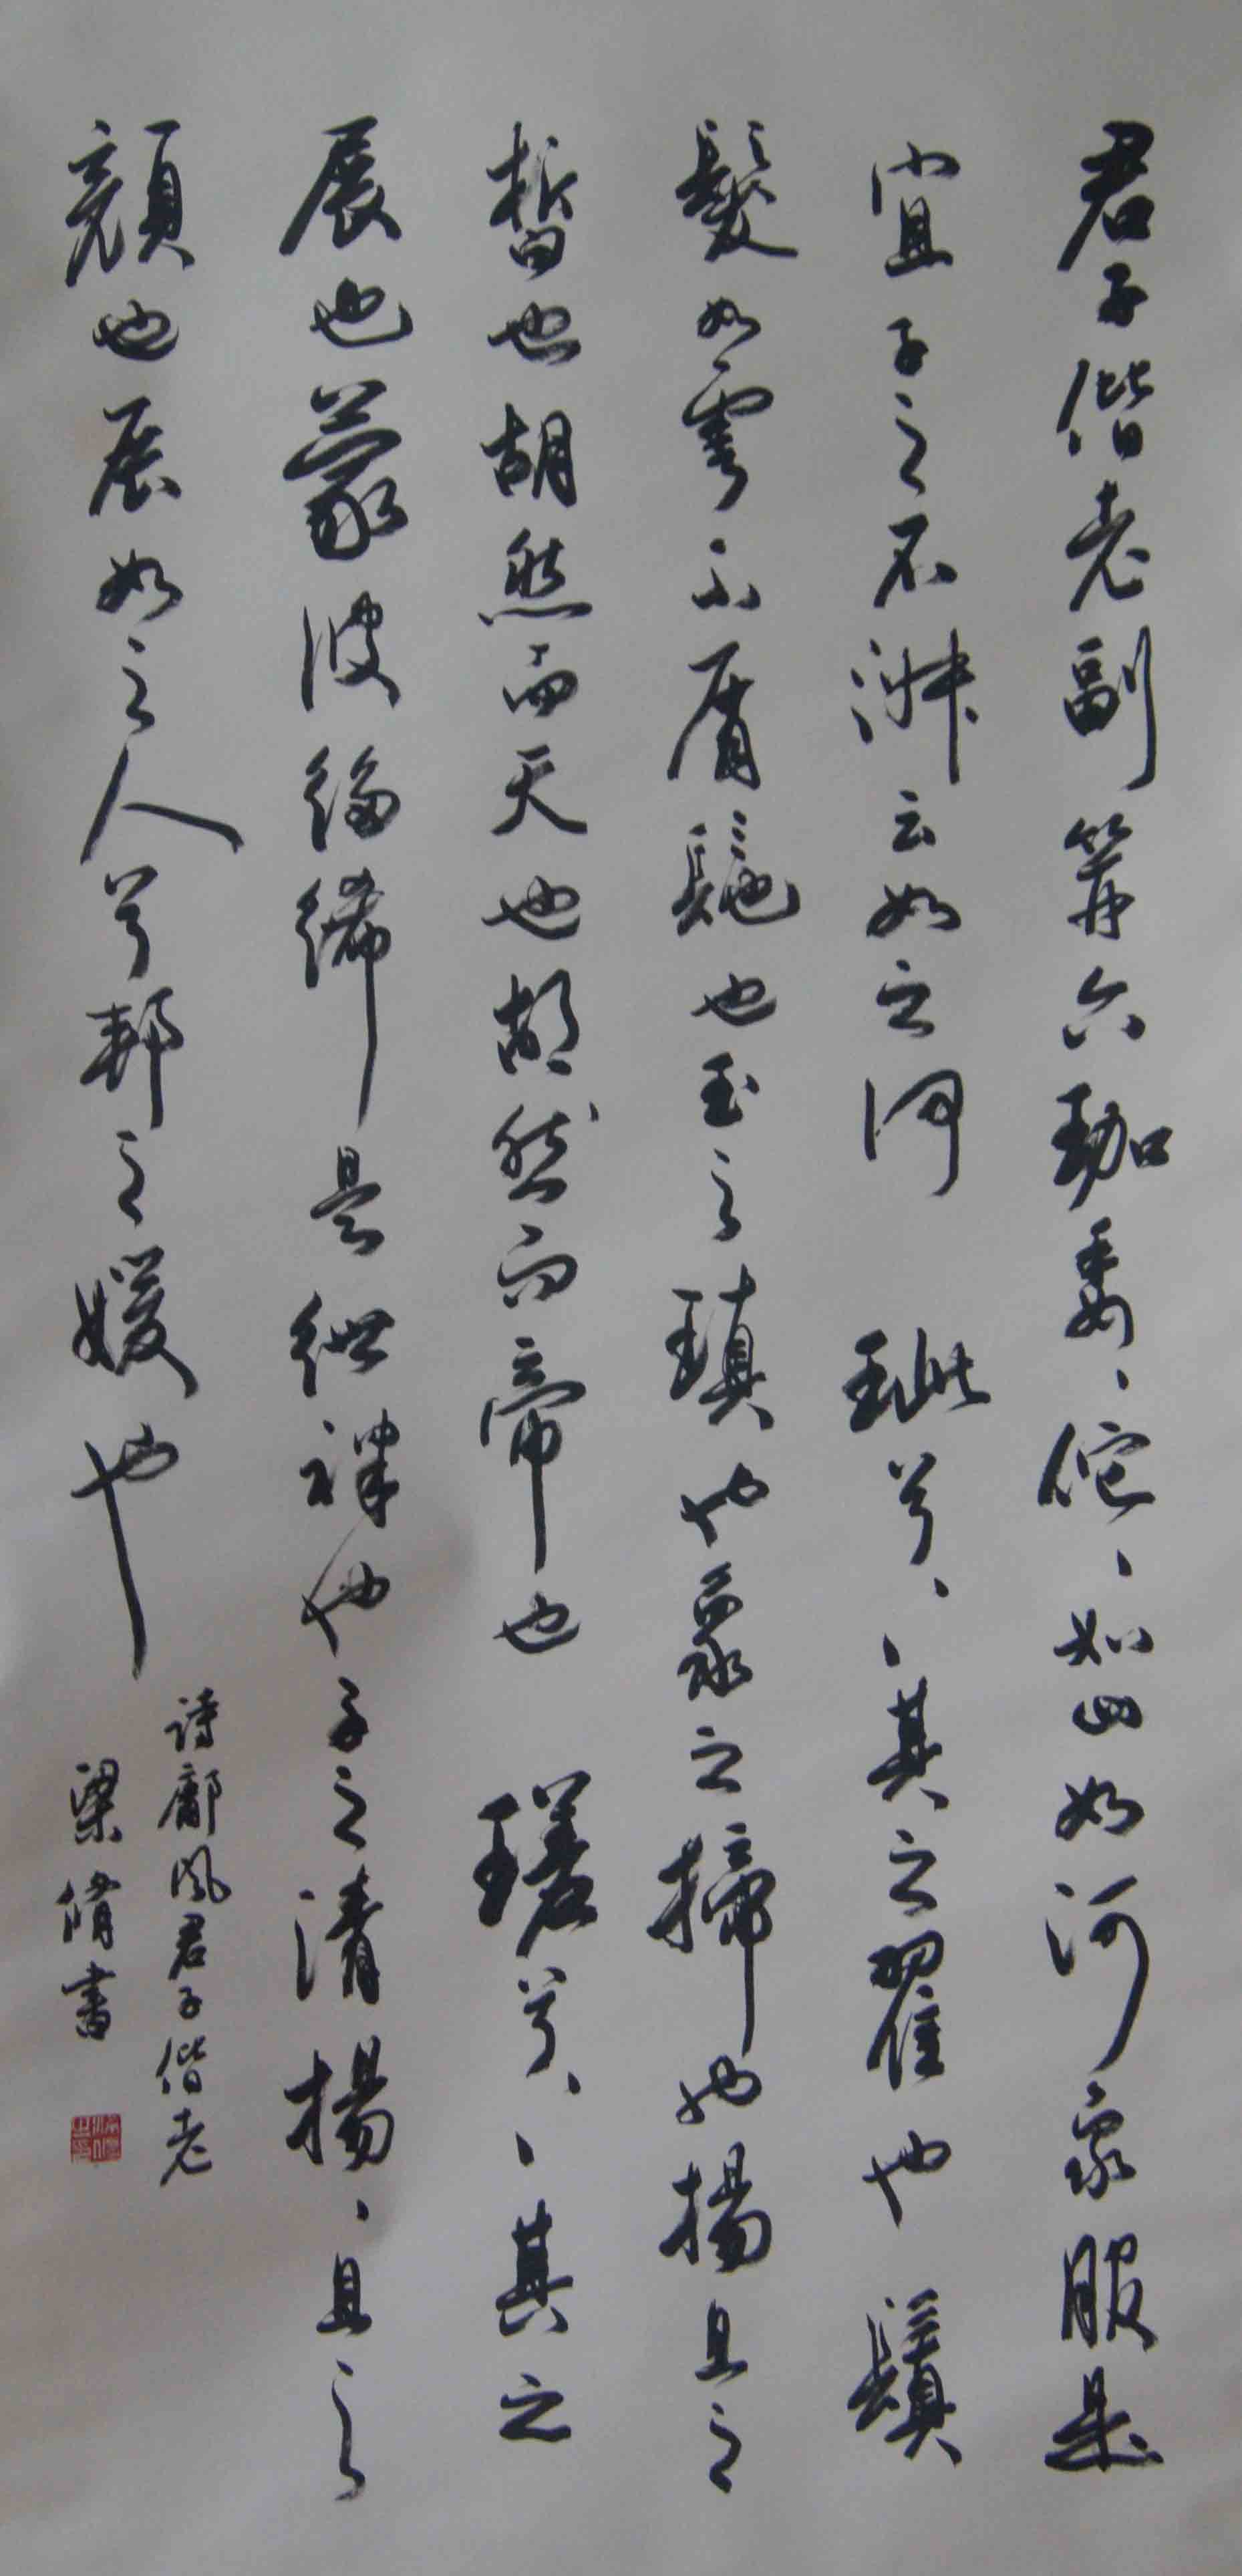 君子偕老副笄六珈委、佗、如山如河象服是
宜子之不淑云如之何 玼兮、、其之翟也鬒
髮如雲不屑髢也玉之瑱也象之揥也揚且之
皙也胡然而天也胡然而帝也 瑳兮、、其之
展也蒙彼縐絺是紲袢也子之清揚、且之
顏也展如之人兮邦之媛也
詩鄘風君子偕老
梁脩書